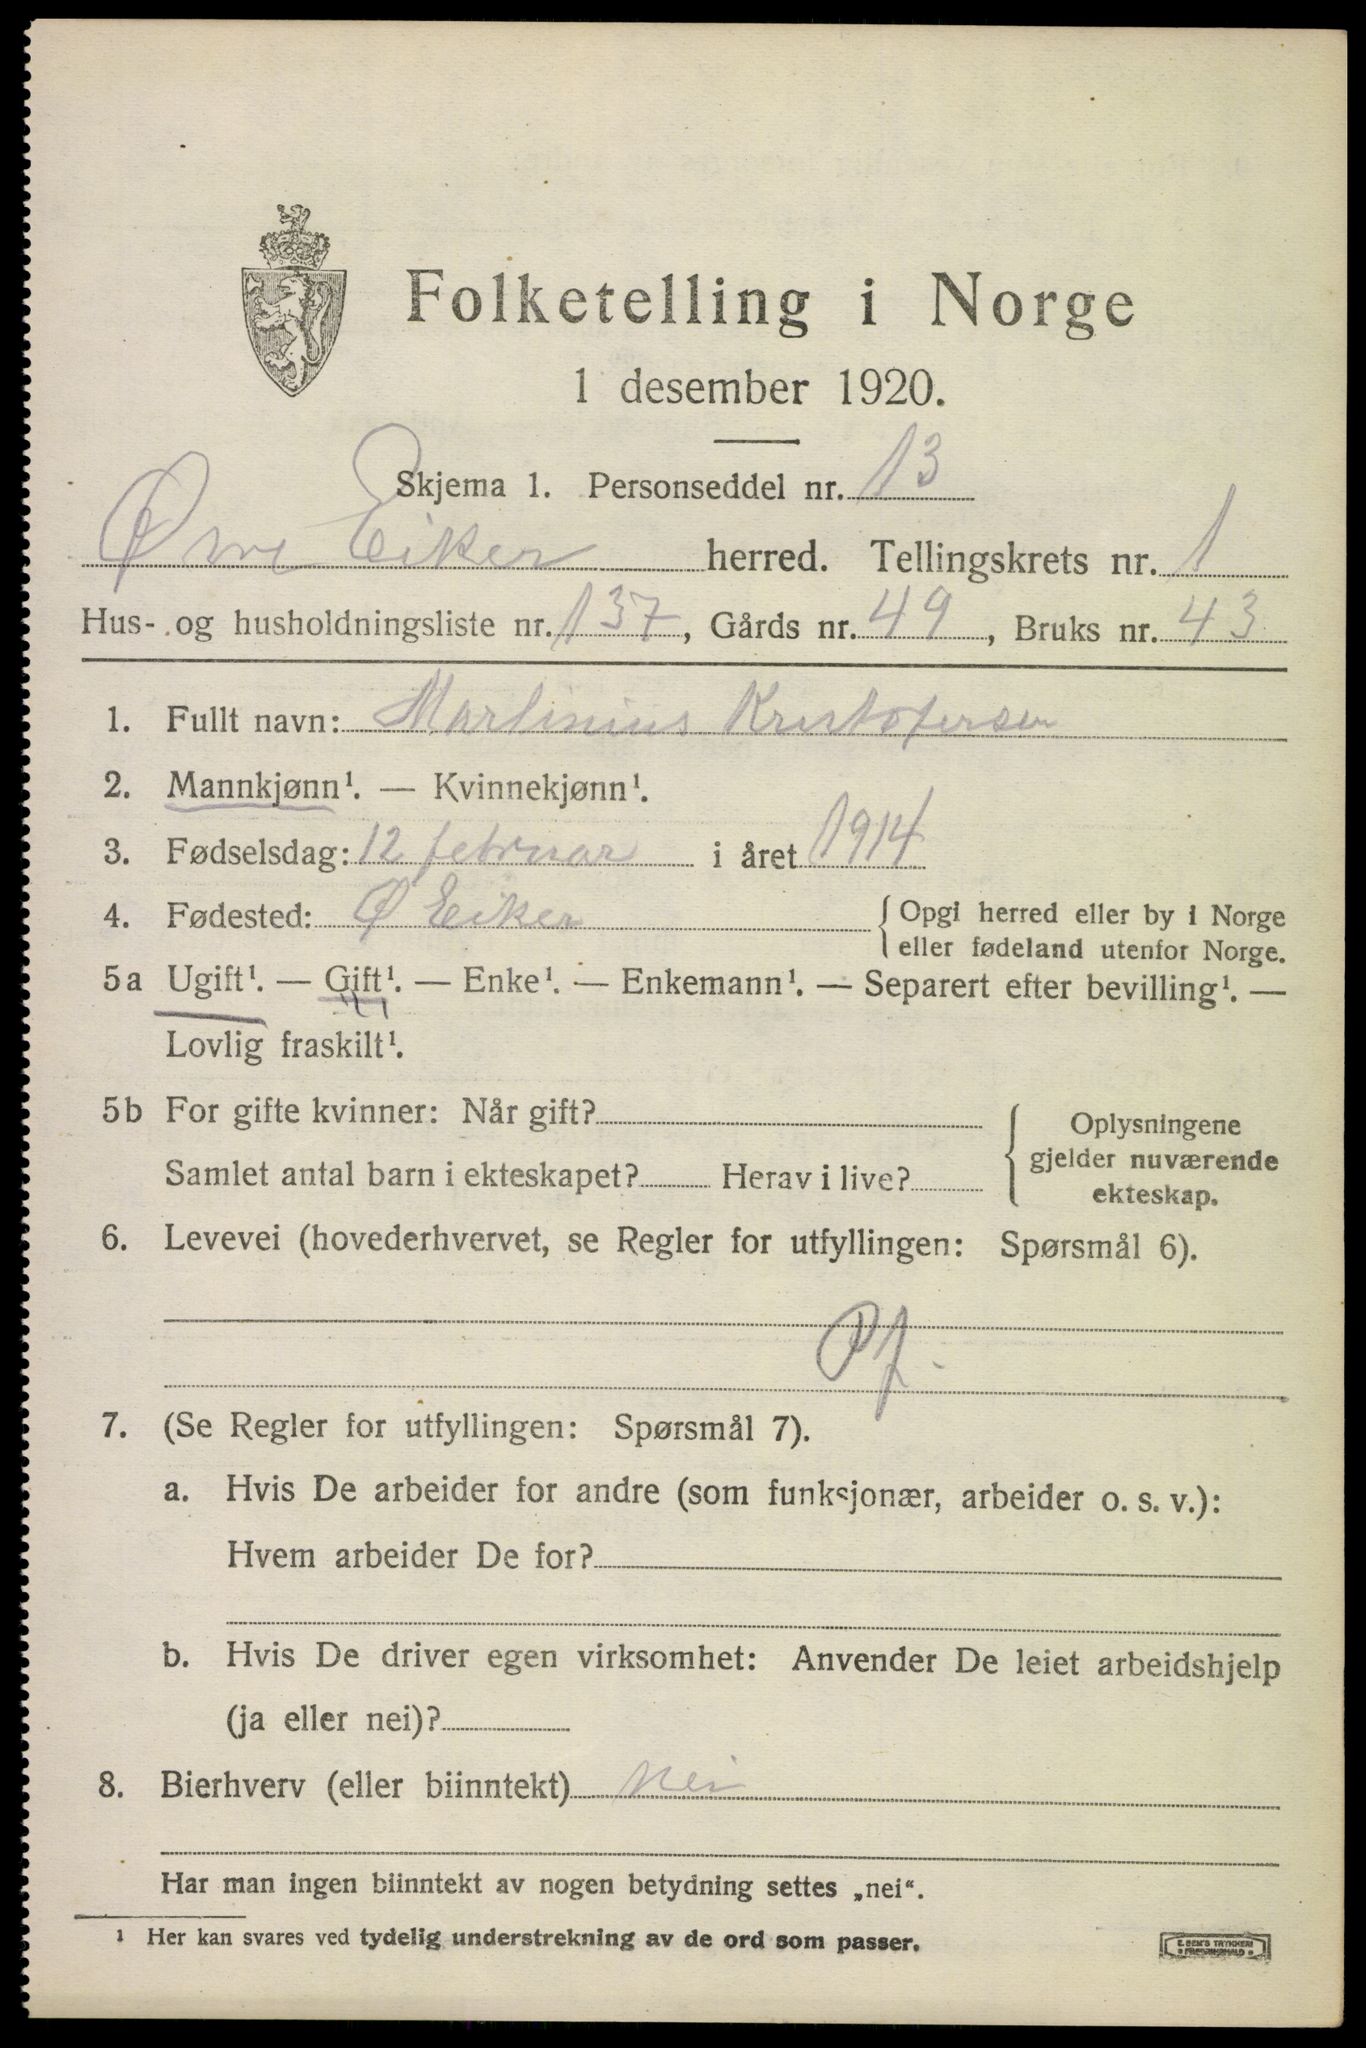 Folketelling i Norge
1 desember 1920.
Skjema 1. Personseddel nr. 13
Øvre Eiker herred. Tellingskrets nr. 1
Hus- og husholdningsliste nr. 137, Gårds nr. 49, Bruks nr. 43
1. Fullt navn: Martinius Kristofersen
2. Mannkjønn¹. — Kvinnekjønn¹.
3. Fødselsdag: 12 februar i året 1914
4. Fødested: Ø Eiker { Opgi herred eller by i Norge
eller fødeland utenfor Norge.
5a Ugift¹. — Gift¹. — Enke¹. — Enkemann¹. — Separert efter bevilling¹. —
Lovlig fraskilt¹.
5b For gifte kvinner: Når gift? { Oplysningene
gjelder nuværende
ekteskap.
Samlet antal barn i ekteskapet? Herav i live?
6. Levevei (hovederhvervet, se Regler for utfyllingen: Spørsmål 6).
Pf.
7. (Se Regler for utfyllingen: Spørsmål 7).
a. Hvis De arbeider for andre (som funksjonær, arbeider o. s. v.):
Hvem arbeider De for?
b. Hvis De driver egen virksomhet: Anvender De leiet arbeidshjelp
(ja eller nei)?
8. Bierhverv (eller biinntekt) nei
Har man ingen biinntekt av nogen betydning settes „nei“.
¹ Her kan svares ved tydelig understrekning av de ord som passer.
E. SEM'S TRYKKERI
FREDRIKSHALD